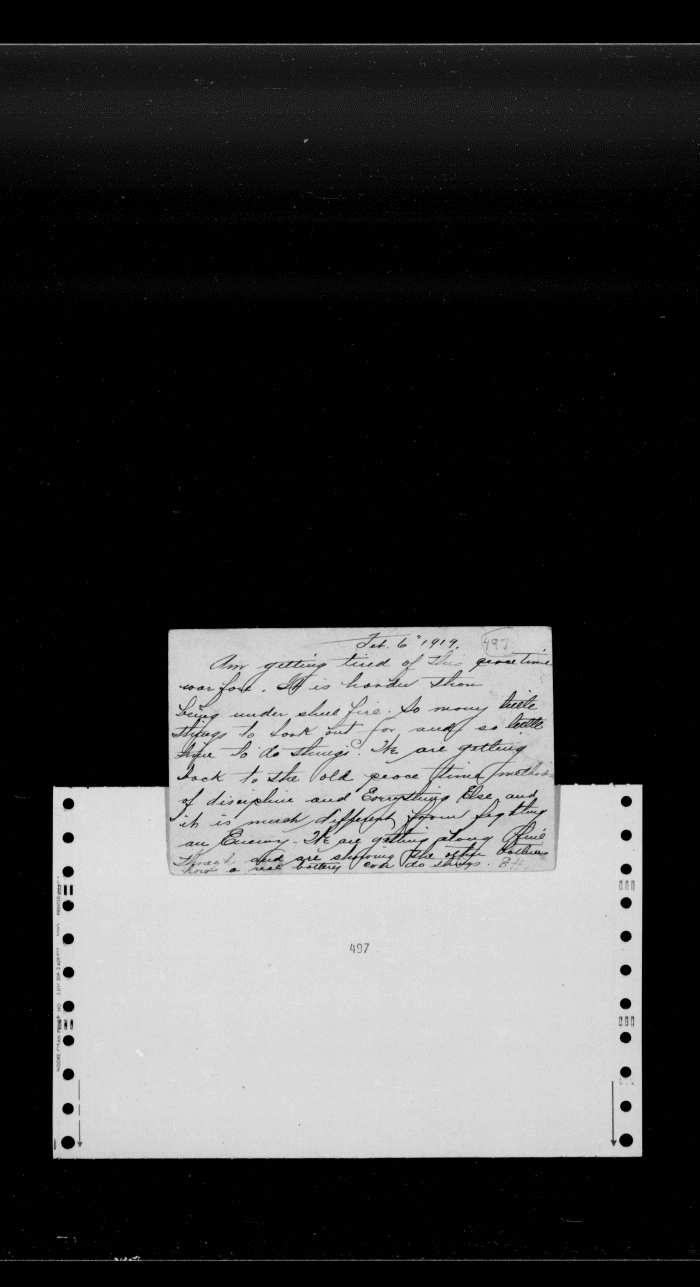 Feb. 6" 1919. 497
Am getting tired of this peace time
war fare. It is harder than
being under shell fire. So many little
things to look out for and so little
time to do things. We are getting
back to the old peace time methods
of discipline and Everything Else and
it is much different from fighting
an Enemy. We are getting along fine
though and are showing the other batterys
how a real battery can do things.
497